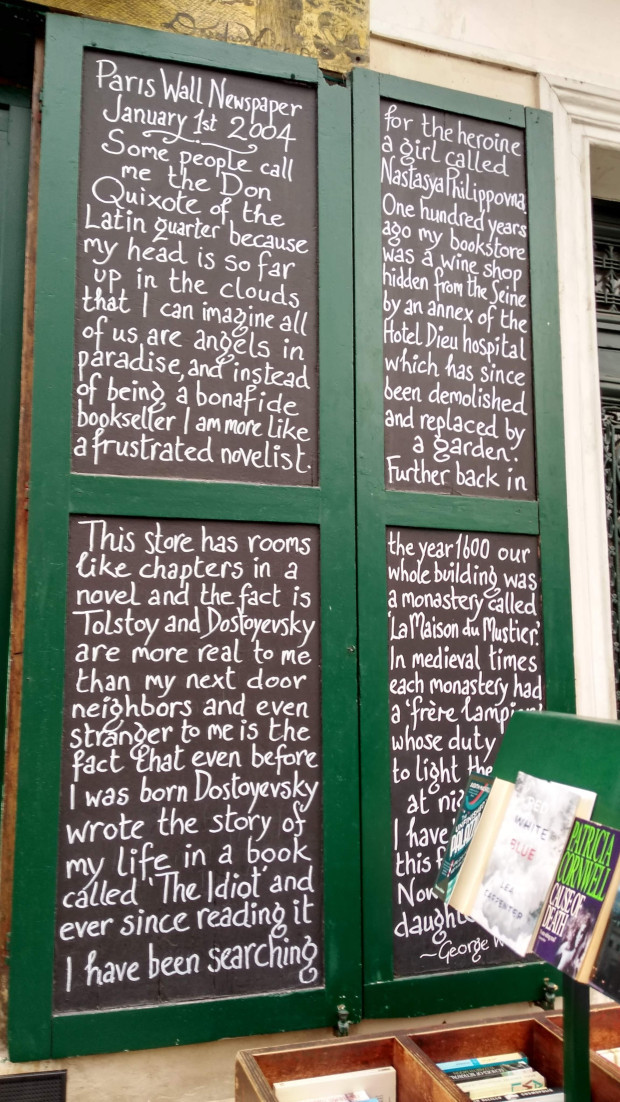 Paris Wall Newspaper
January 1st 2004
Some people call
me the Don
Quixote of the
Latin quarter because
my head is so far
up in the clouds
that I can imagine all
of us are angels in
paradise, and instead
of being a bonafide
bookseller I am more like
a frustrated novelist.
This store has rooms
like chapters in a
novel and the fact is
Tolstoy and Dostoyevsky
are more real to me
than my next door
neighbors and even
stranger to me is the
fact that even before
I was born Dostoyevsky
wrote the story of
my life in a book
called 'The Idiot' and
ever since reading it
I have been searching
for the heroine
a girl called
Nastasya Philippovna.
One hundred years
ago my bookstore
was a wine shop
hidden from the Seine
by an annex of the
Hotel Dieu hospital
which has since
been demolished
and replaced by
a garden.
Further back in
the year 1600 our
whole building was
a monastery called
'La Maison du Mustier.'
In medieval times
each monastery had
a 'frère
whose duty
to light the
at
I have
this
~George
RED
WHITE
BLUE
LEA
CARPENTER
PATRICIA
CORNWELL
CAUSE OF
DEATH